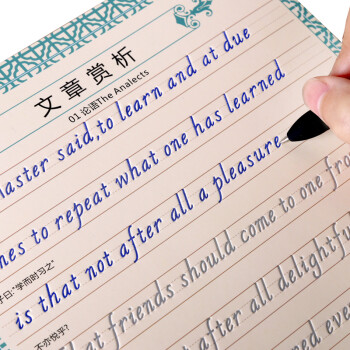 文章赏析
01 论语The Analects
Master said,to learn and at due
nes to repeat what one has learned
子曰:“学而时习之”
is that not after all a pleasure
That friends should come to one fro
不亦悦乎?
after all delightful